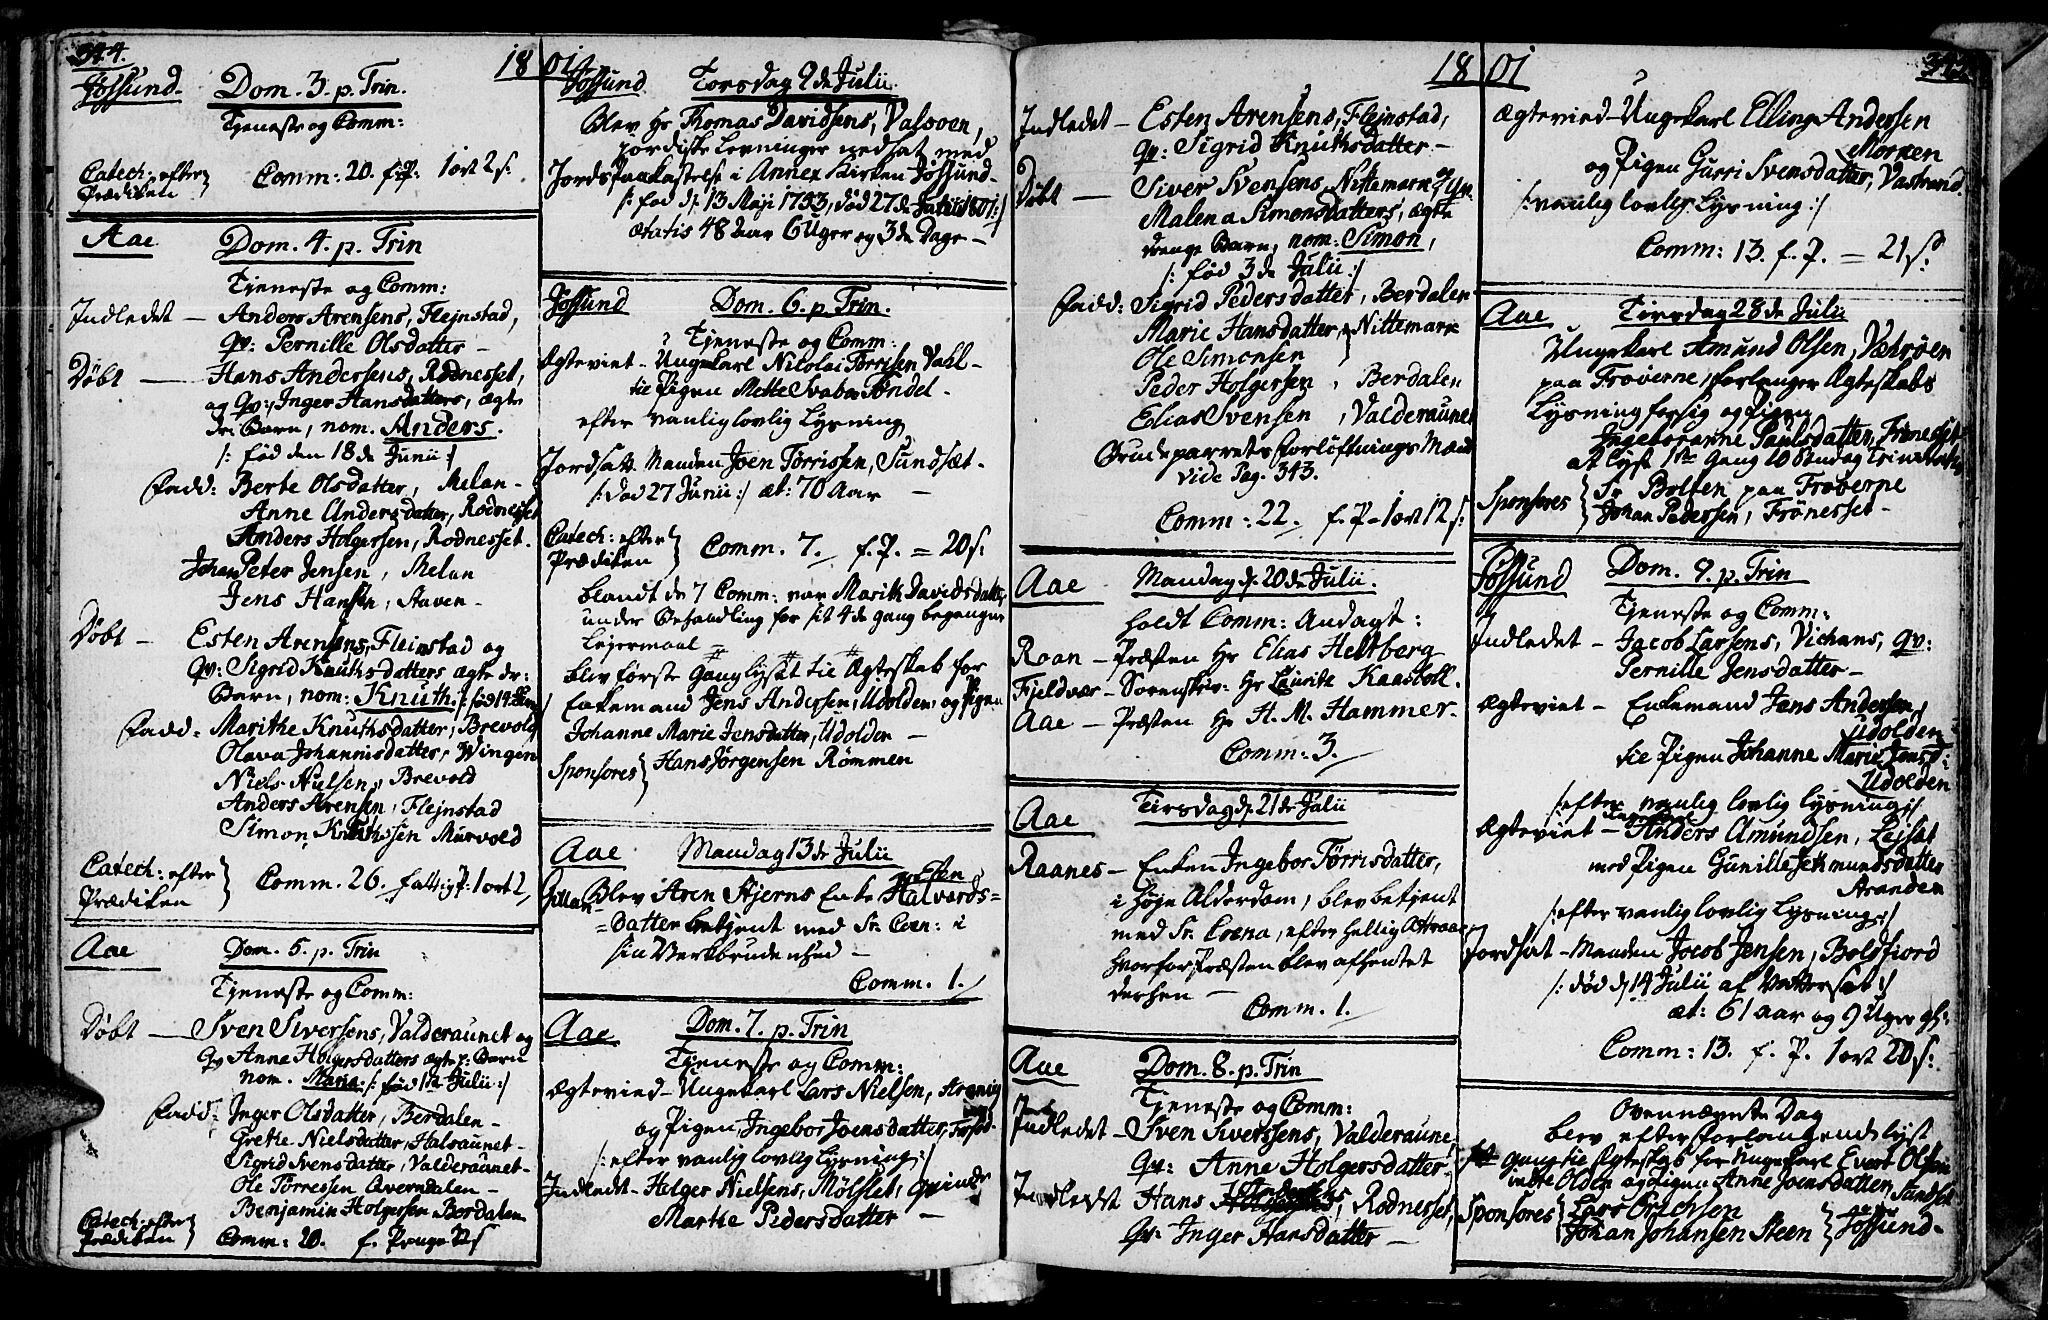 344.
1801.
Jøssund Dom. 3. p. Trin.
Tjeneste og Comm:
Catech: efter Prædiken Comm: 20. f. P. 1 ort 2 s.
Aae Dom. 4. p. Trin
Tjeneste og Comm:
Indledet – Anders Arensens, Flejnstad,
Qv: Pernille Olsdatter –
Døbt – Hans Andersens, Rodnesset,
og Qv: Inger Hansdatters, ægte
dr: Barn, nom. Anders.
/: fød den 18de Junii :/
Fadd: Berte Olsdatter, Melan –
Anne Andersdatter, Rodnesset
Anders Holgersen, Rodnesset.
Johan Peter Jensen, Melan
Jens Hansen, Aaven –
Døbt – Esten Arensens, Flejnstad og
Qv: Sigrid Knuthsdatters ægte dr:
Barn, nom: Knuth.
Fadd: Marithe Knuthsdatter, Brevold
Olava Johannisdatter, Wingen
Niels Hulsen, Brevold
Anders Arensen, Flejnstad
Simon Knuthssen Murvold
Catech: efter Prædiken Comm. 26. fattig P: 1 ort 2
Aae Dom. 5. p. Trin
Tjeneste og Comm:
Døbt – Sven Siversens, Valderaunet og
Qv Anne Holgersdatters ægte p. Barn
nom. Maria /: fød 1ste Julii :/
Fadd: Inger Olsdatter, Berdalen –
Grethe Nielsdatter, Halsaunet –
Sigrid Svensdatter, Valderaunet –
Ole Torressen Averndalen –
Benjamin Holgersen Berdalen
Catech: efter Prædiken Comm: 20. f. Penge 22 s
Jøssund Torsdag 9de Julii
Blev Hr Thomas Davidsens, Valsøen,
jordiske Levninger nedsat med
Jords Paakastelse i Annex Kirken Jøssund –
/: fød d. 13 Maji 1753, død 27de Junii 1801 :/
ætatis 48 Aar 6 Uger og 3de Dage –
Jøssund Dom. 6. p. Trin.
Tjeneste og Comm:
Ægteviet – Ungekarl Nicolai Torrisen Vahl –
til Pigen Mette Svabo Søndel –
efter vanlig lovlig Lysning
Jordsatt Manden Joen Tørrissen, Sundsæt –
/: død 27 Junii :/ æt: 70 Aar –
Catech: efter Prædiken Comm. 7. f. P. = 20 s:
blandt de 7 Comm: var Marith Davidsdatter
under Behandling for sit 4de gang begangne
Lejermaal =
blev første Gang lyset til Ægteskab for
Enkemand Jens Andersen, Udolden, og Pigen
Johanne Marie Jensdatter, Udolden –
Sponsores Hans Jørgensen Rømmen
Aae Mandag 13de Julii
Blev Aren Stjerns Enke Halvords=
=datter betjent med Sr. Cœn: i
sin Verkbrudenhed –
Comm. 1.
Aae Dom. 7. p. Trin
Tjeneste og Comm:
Ægteviet – Ungekarl Lars Nielsen,
og Pigen, Ingebor Joensdatter,
/: efter vanlig lovlig Lysning :/
Indledet – Holger Nielsens, Mølslet, Qvinde
Marthe Pedersdatter –
1801
Indledet – Esten Arensens, Flejnstad,
Qv: Sigrid Knuthsdatter –
Døbt – Siver Svensens, Nittemark og Qv:
Malena Simonsdatters, ægte
drenge Barn, nom: Simon,
/: fød 3de Julii :/
Fadd: Sigrid Pedersdatter, Berdalen
Marie Hansdatter, Nittemark
Ole Simonsen
Peder Holgersen, Berdalen
Elias Svensen, Valderaunet
Brudeparrets Forløftnings Mænd
vide Pag. 343.
Comm: 22. f. P – 1 ort 12 s:
Aae Mandag d. 20de Julii.
holdt Comm: Andagt:
Roan – Præsten Hr Elias Heltberg
Fjeldvær – Sorenskriv: Hr Lauritz Kaasbøll.
Aae – Præsten Hr H. M. Hammer.
Comm: 3.
Aae Tirsdag d. 21de Julii
Raanes – Enken Ingebor Tørrisdatter,
i høje Alderdom, blev betjent
med Sr. Cœna, efter hellig Attraae
hvorfor Præsten blev afhentet
derhen –
Comm. 1.
Aae Dom. 8. p. Trin
Tjeneste og Comm:
Indledet – Sven Siverssens, Valderaune,
Qv: Anne Holgersdatter –
Indledet Hans Andersens, Rodnesset,
Qv: Inger Hansdatter –
Ægteviet – Ungekarl Elling Andersen
Mornen
og Pigen Gurri Svensdatter, Vastrand
/: vanlig lovlig Lysning :/
Comm: 13. f. P. = 21 s.
Aae Tirsdag 28de Julii
Ungekarl Amund Olsen, Vætrøen
paa Frøverne, forlanger Ægteskabs
Lysning for sig og Pigen
Ingeboranne Paulsdatter, Frønesset
at lyse 1ste Gang 10 Søndag Trinitatis
Sponsores Sr Bolten paa Frøverne
Johan Pedersen, Frønesset –
Jøssund Dom. 9. p. Trin
Tjeneste og Comm:
Indledet – Jacob Larsens, Vichans, Qv:
Pernille Jensdatter –
Ægteviet – Enkemand Jens Andersen,
Udolden
til Pigen Johanne Marie Jensd:
Udolden
/: efter vanlig lovlig Lysning :/
Ægteviet – Ungekarl Anders Amundsen, Lejsæt
med Pigen Gunille Setmundsdatter
Aranden
/: efter vanlig lovlig Lysning :/
Jordsat – Manden Jacob Jensen, Bolsfjord
/: død d. 14 Julii af Vattersot :/
æt: 61 aar og 9 Uger gl:
Comm: 13. f. P. 1 ort 20 s:
Ovennævnte Dag
blev efter Forlangende lyst
1ste gang til Ægteskab for Ungekarl Evert Olsen
og Pigen Anne Joensdatter, Sundset
Sponsores Lars Erichsen
Johan Johansen Steen Jøssund –